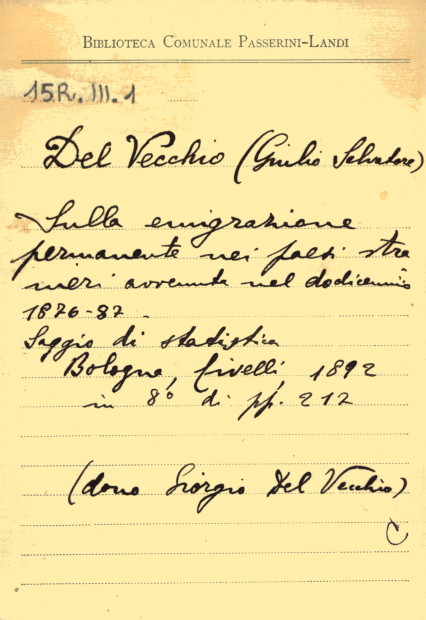 BIBLIOTECA COMUNALE PASSERINI-LANDI
15R. III. 1
Del Vecchio (Giulio Salvatore)
Sulla emigrazione
permanente nei paesi stra
nieri avvenuta nel dodicennio
1876-87.
Saggio di statistica
Bologna, Civelli, 1892
in 8º di pp. 212
(dono Giorgio Del Vecchio)
C